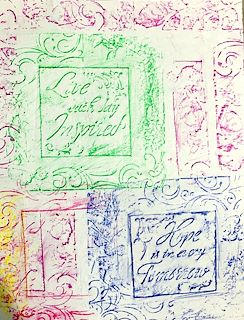 Live
each day
Inspired
Hope
in every
Tomorrow